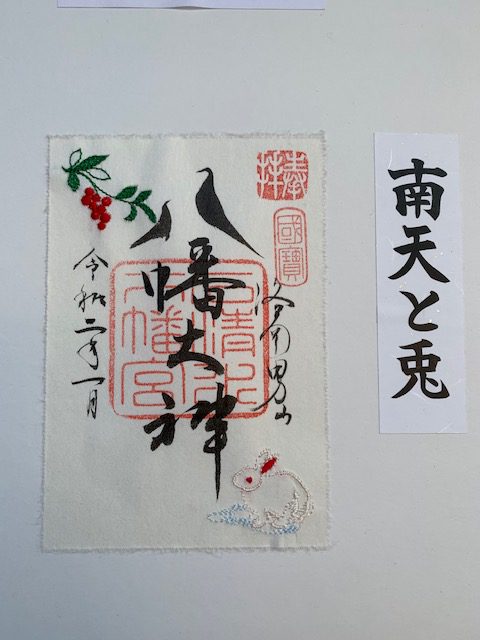 南天と兎
奉拝
國寶
洛南男山
八幡大神
石清水
八幡宮
令和二年一月